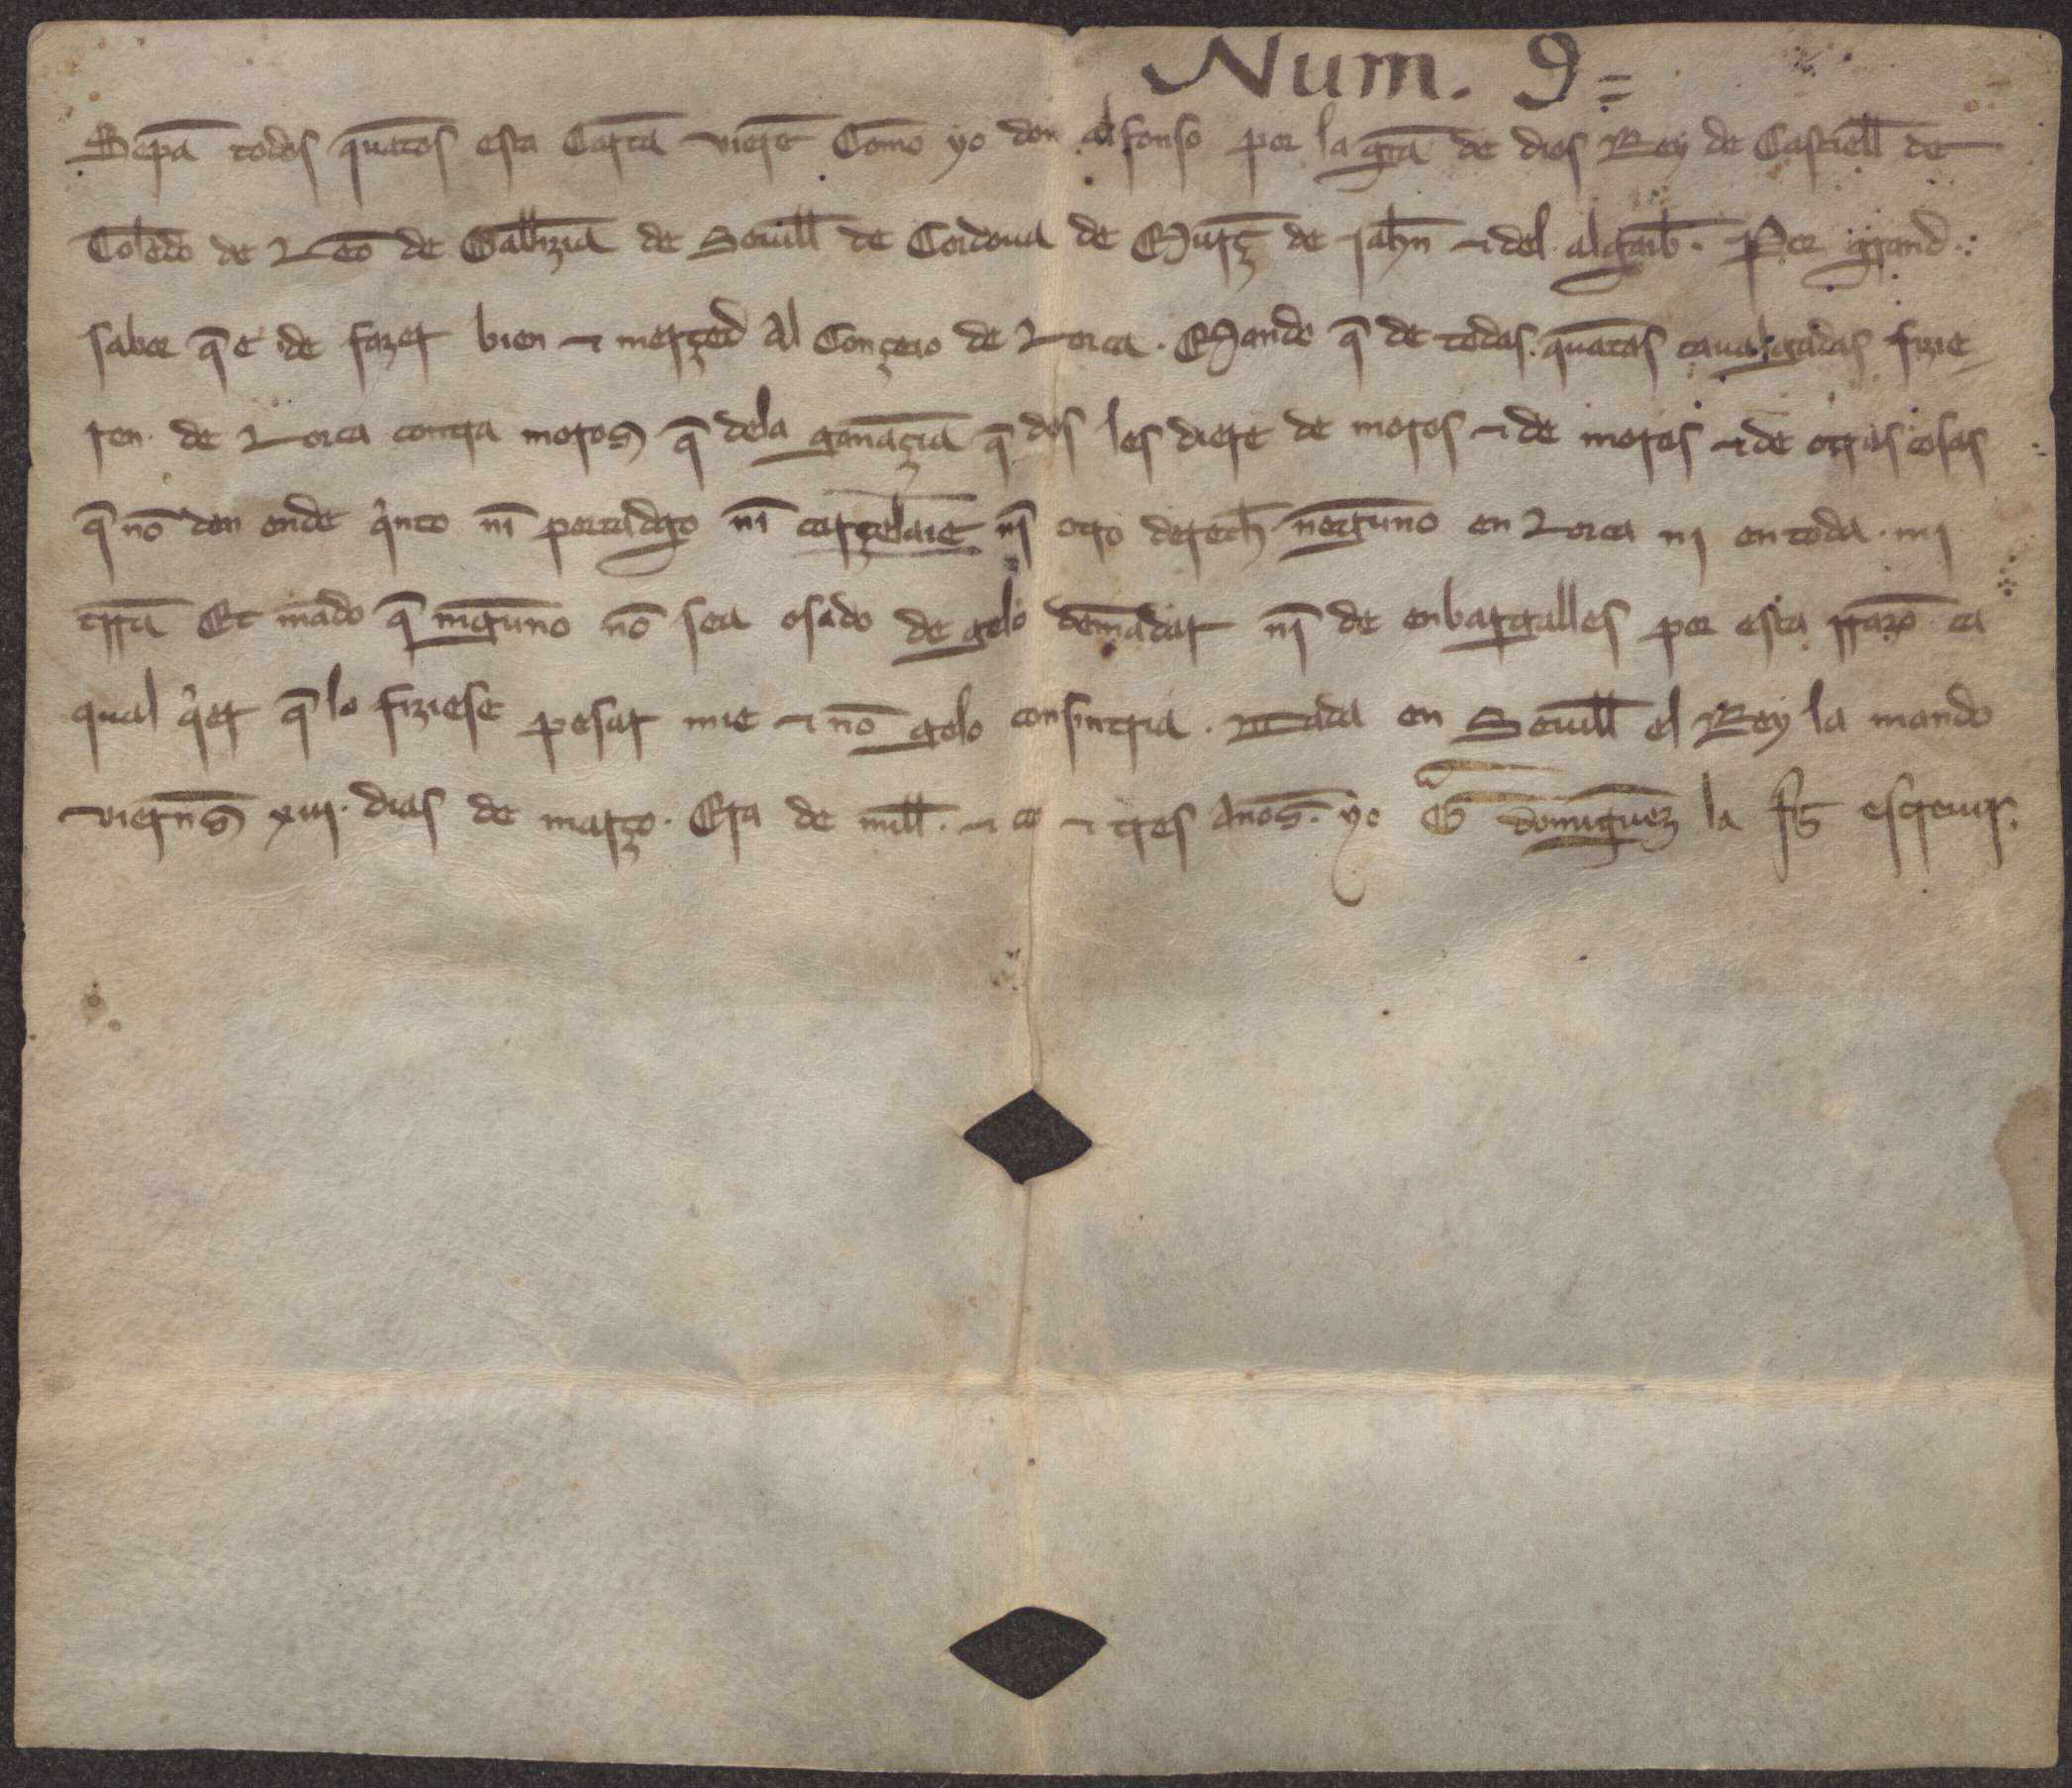 Num. 9=
Sepā todos quātos esta Carta vierē Como yo don alfonso por la gr̄a de dios Rey de Castiell̄ de
Toledo de Leō de Gallizia de Seuill̄ de Cordoua de Murç̄ de Jahn̄ ⁊ del algarb̄. Por grand
sabor q̄ e de fazer bien ⁊ merçed al Conçeio de Lorca. Mando q̄ de todas quātas caualgadas fizie
ren de Lorca contra moros q̄ dela ganāçia q̄ dios les diere de moros ⁊ de moras ⁊ de otras cosas
q̄ nō den ende qinto nī portadgo nī carçelaie nī otro derech̄ ninguno en Lorca ni en toda mi
trr̄a Et mādo q̄ ninguno nō sea osado de gelo demādar nī de enbargalles por esta rrazō ca
qual qier q̄ lo fiziese pesar mie ⁊ nō gelo consintria. Dada en Seuill̄ el Rey la mando
viern̄s xiii. dias de março. Era de mill̄. ⁊ ccc ⁊ tres Anos. yo Ḡ domīguez la fiz escreuir.